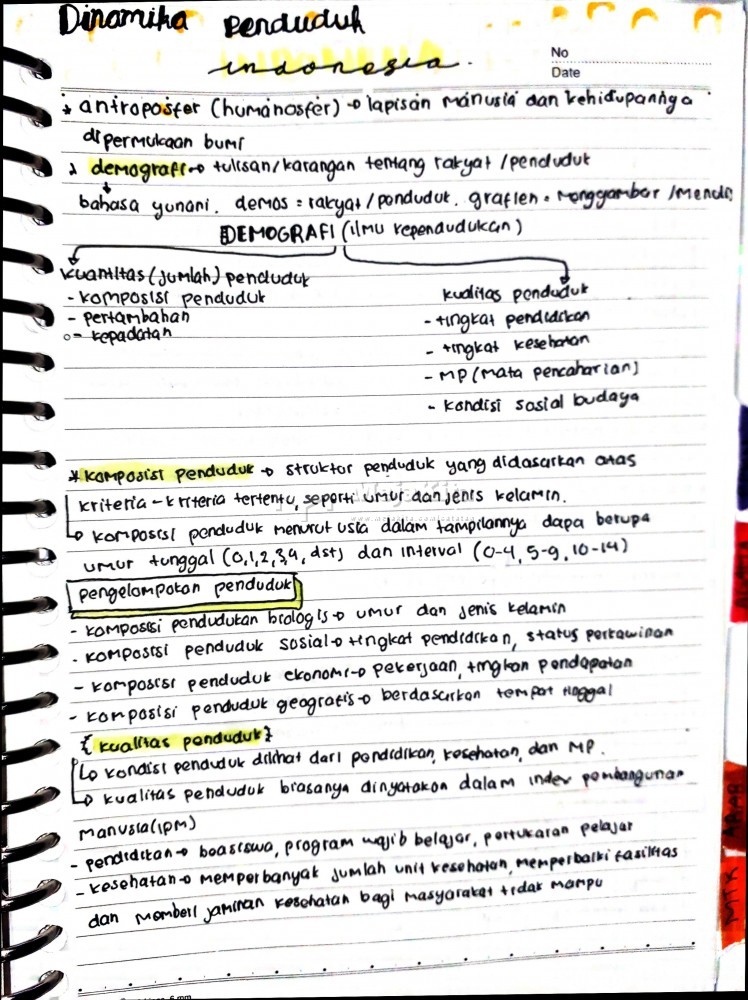 Dinamika Penduduk
indonesia.
No
Date
* antroposfer (humanosfer) → lapisan manusia dan kehidupannya
di permukaan bumi
demografi → tulisan/karangan tentang rakyat/penduduk
bahasa yunani. demos = rakyat/penduduk. grafien = Menggambar/Menulis
DEMOGRAFI (ilmu kependudukan)
kuantitas (jumlah) penduduk
- komposisi penduduk
- pertambahan
- kepadatan
kualitas penduduk
- tingkat pendidikan
- tingkat kesehatan
- MP (Mata pencaharian)
- kondisi sosial budaya
* komposisi penduduk → struktur penduduk yang didasarkan atas
kriteria-kriteria tertentu, seperti umur dan jenis kelamin.
↳ komposisi penduduk menurut usia dalam tampilannya dapa berupa
umur tunggal (0,1,2,3,4, dst) dan interval (0-4, 5-9, 10-14)
pengelompokan penduduk
- komposisi pendudukan biologis → umur dan jenis kelamin
- komposisi penduduk sosial → tingkat pendidikan, status perkawinan
- komposisi penduduk ekonomi → pekerjaan, tingkan pendapatan
- komposisi penduduk geografis → berdasarkan tempat tinggal
{ kualitas penduduk }
↳ kondisi penduduk dilihat dari pendidikan, kesehatan, dan MP.
↳ kualitas penduduk biasanya dinyatakan dalam index pembangunan
manusia (IPM)
- pendidikan → beasiswa, program wajib belajar, pertukaran pelajar
- kesehatan → memperbanyak jumlah unit kesehatan, memperbaiki fasilitas
dan memberi jaminan kesehatan bagi masyarakat tidak mampu
ARAB
MTK
6 mm